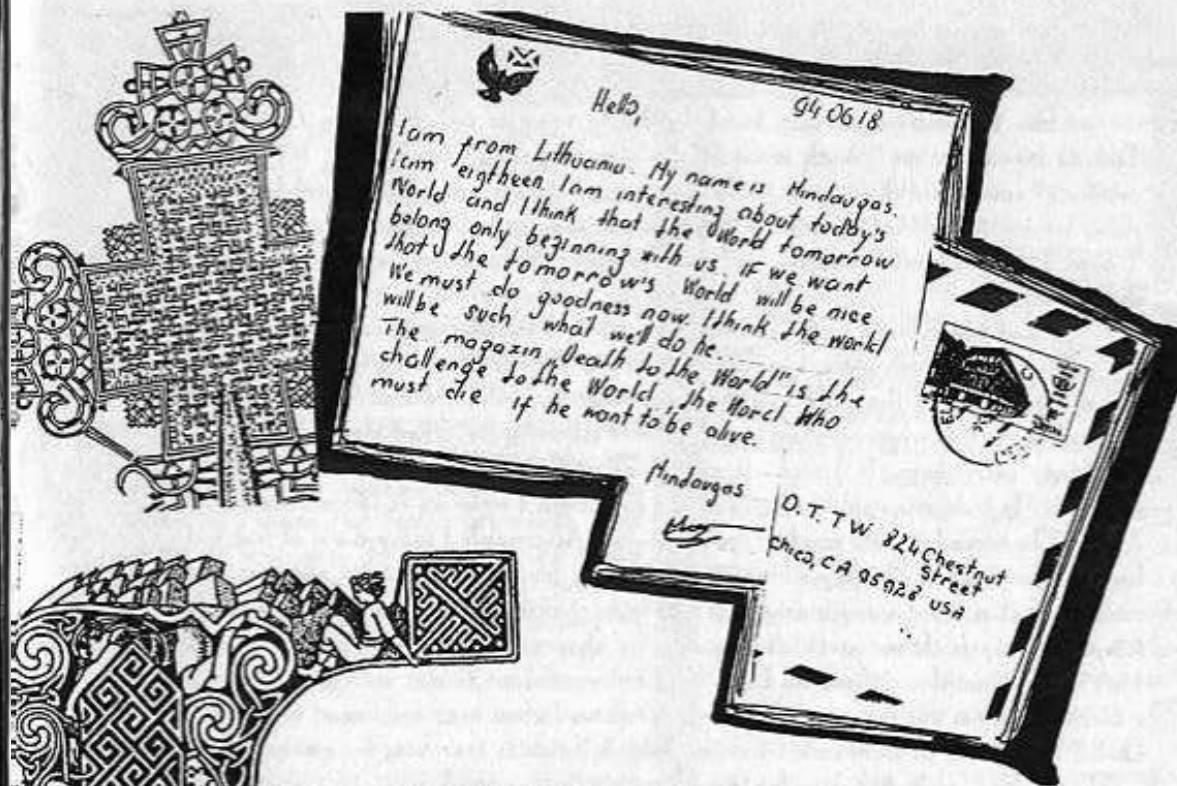 94 06 18
Hello,
I am from Lithuania. My name is Mindaugas.
I am eigtheen. I am interesting about today's
World and I think that the World tomorrow
belong only beginning with us. If we want
that the tomorrow's World will be nice
We must do goodness now. I think the world
will be such what we'll do he......
The magazin „Death to the World" is the
challenge to the World, the World Who
must die if he want to be alive.
Mindaugas
D.T.T.W. 824 Chestnut
Street
Chico, CA 95928 USA